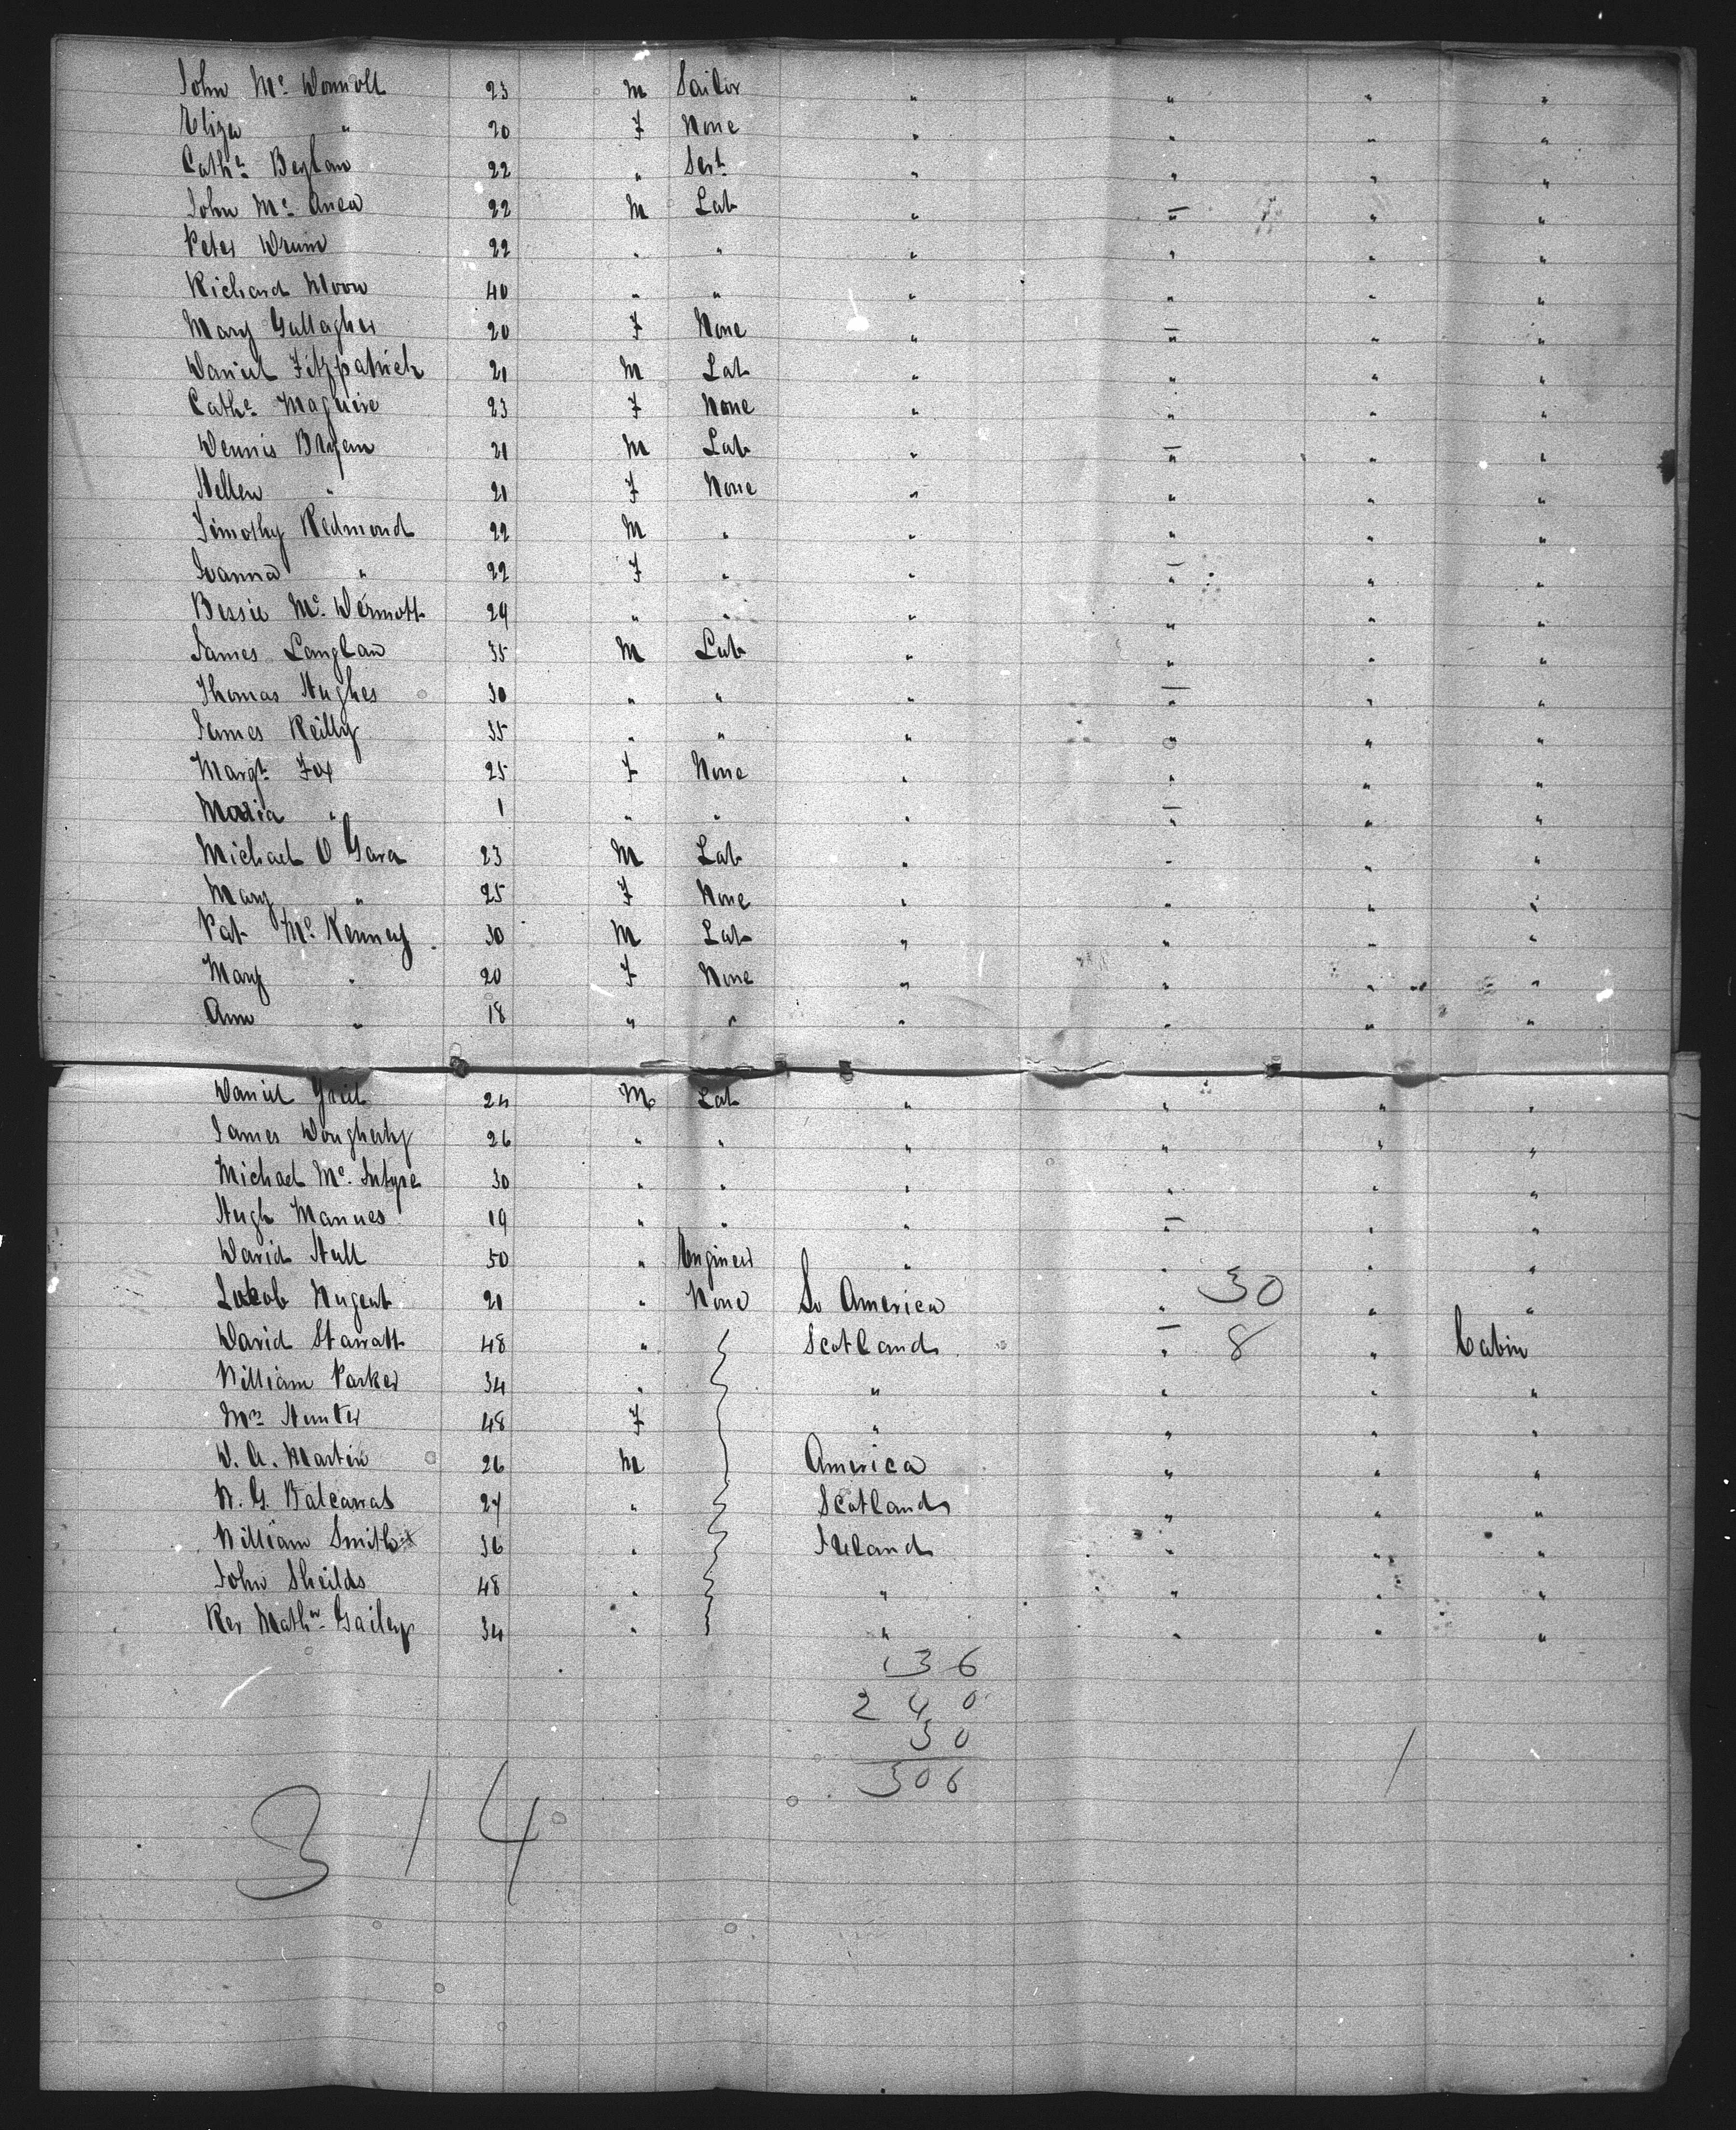 John Mc Donnoll 23 M Sailor " " " "
Eliza " 20 F None " " " "
Cathe Beglan 22 " Sert " " " "
John Mc Anea 22 M Lab " " " "
Peter Drum 22 " " " " " "
Richard Moon 40 " " " " " "
Mary Gallagher 20 F None " " " "
Daniel Fitzpatrick 21 M Lab " " " "
Cathe Maguire 23 F None " " " "
Dennis Bryan 21 M Lab " " " "
Hellen " 21 F None " " " "
Timothy Redmond 22 M " " " " "
Joanna " 22 F " " " " "
Bessie Mc Dermott 24 " " " " " "
James Langlan 35 M Lab " " " "
Thomas Hughes 30 " " " " " "
James Reilly 35 " " " " " "
Margt Fox 25 F None " " " "
Maria " 1 " " " " " "
Michael O Gara 23 M Lab " " " "
Mary " 25 F None " " " "
Pat Mc Kenney 30 M Lab " " " "
Mary " 20 F None " " " "
Ann " 18 " " " " " "
Daniel 24 M Lab " " " "
James Dougherty 26 " " " " " "
Michael Mc Intyre 30 " " " " " "
Hugh Manues 19 " " " " " "
David Hull 50 " Engineer " " " "
Nugent 21 " None So America " 30 " "
David Starratt 48 " Scotland " 8 " Cabin
William Parker 34 " " " " "
Mrs Hunter 48 F " " " "
W. A. Martin 26 M America " " "
W. G. Balcarras 27 " Scotland " " "
William Smith 36 " Ireland " " "
John Sheilds 48 " " " " "
Rev Mathw Gailey 34 " " " " "
36
240
30
306
314